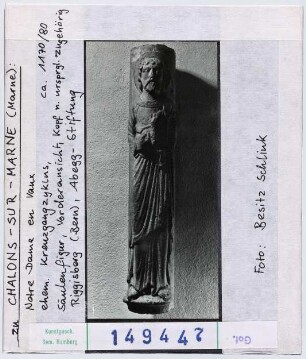 zu CHALONS-SUR-MARNE (Marne):
Notre-Dame en Vaux
ehem. Kreuzgangzyklus, ca. 1170/80
Säulenfigur, Vorderansicht, Kopf n. ursprgl. zugehörig
Riggisberg (Bern), Abegg-Stiftung
Foto: Besitz Schlink
Kunstgesch.
Sem. Hamburg
149442
Got.